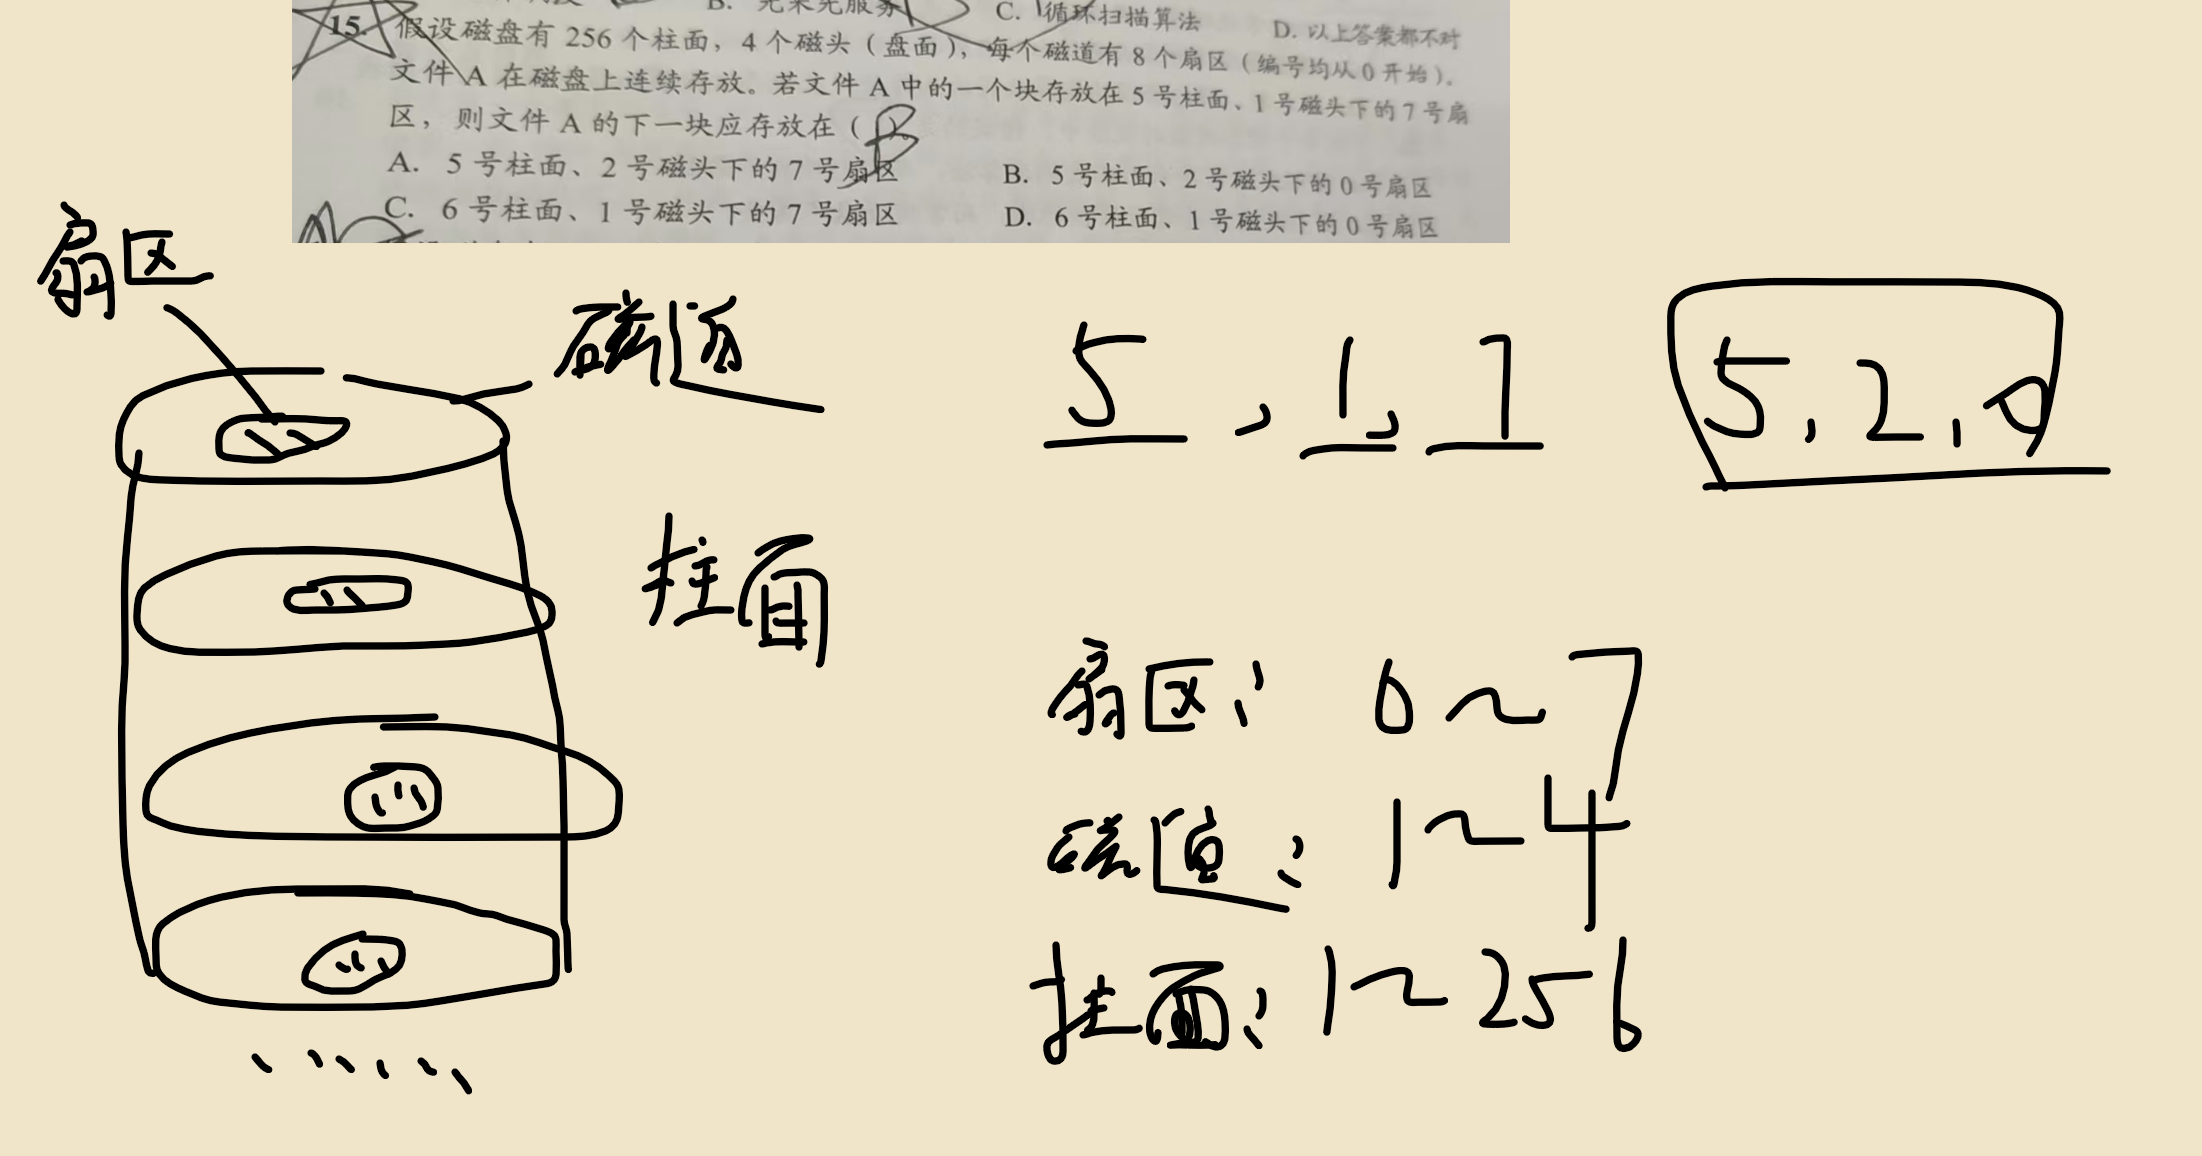 B. 先来先服务
C. 循环扫描算法
D. 以上答案都不对
15. 假设磁盘有 256 个柱面，4 个磁头（盘面），每个磁道有 8 个扇区（编号均从 0 开始）。
文件 A 在磁盘上连续存放。若文件 A 中的一个块存放在 5 号柱面、1 号磁头下的 7 号扇
区，则文件 A 的下一块应存放在（B）。
A. 5 号柱面、2 号磁头下的 7 号扇区
B. 5 号柱面、2 号磁头下的 0 号扇区
C. 6 号柱面、1 号磁头下的 7 号扇区
D. 6 号柱面、1 号磁头下的 0 号扇区
扇区
磁道
柱面
5, 1, 7
5, 2, 0
扇区: 0~7
磁道: 1~4
柱面: 1~256